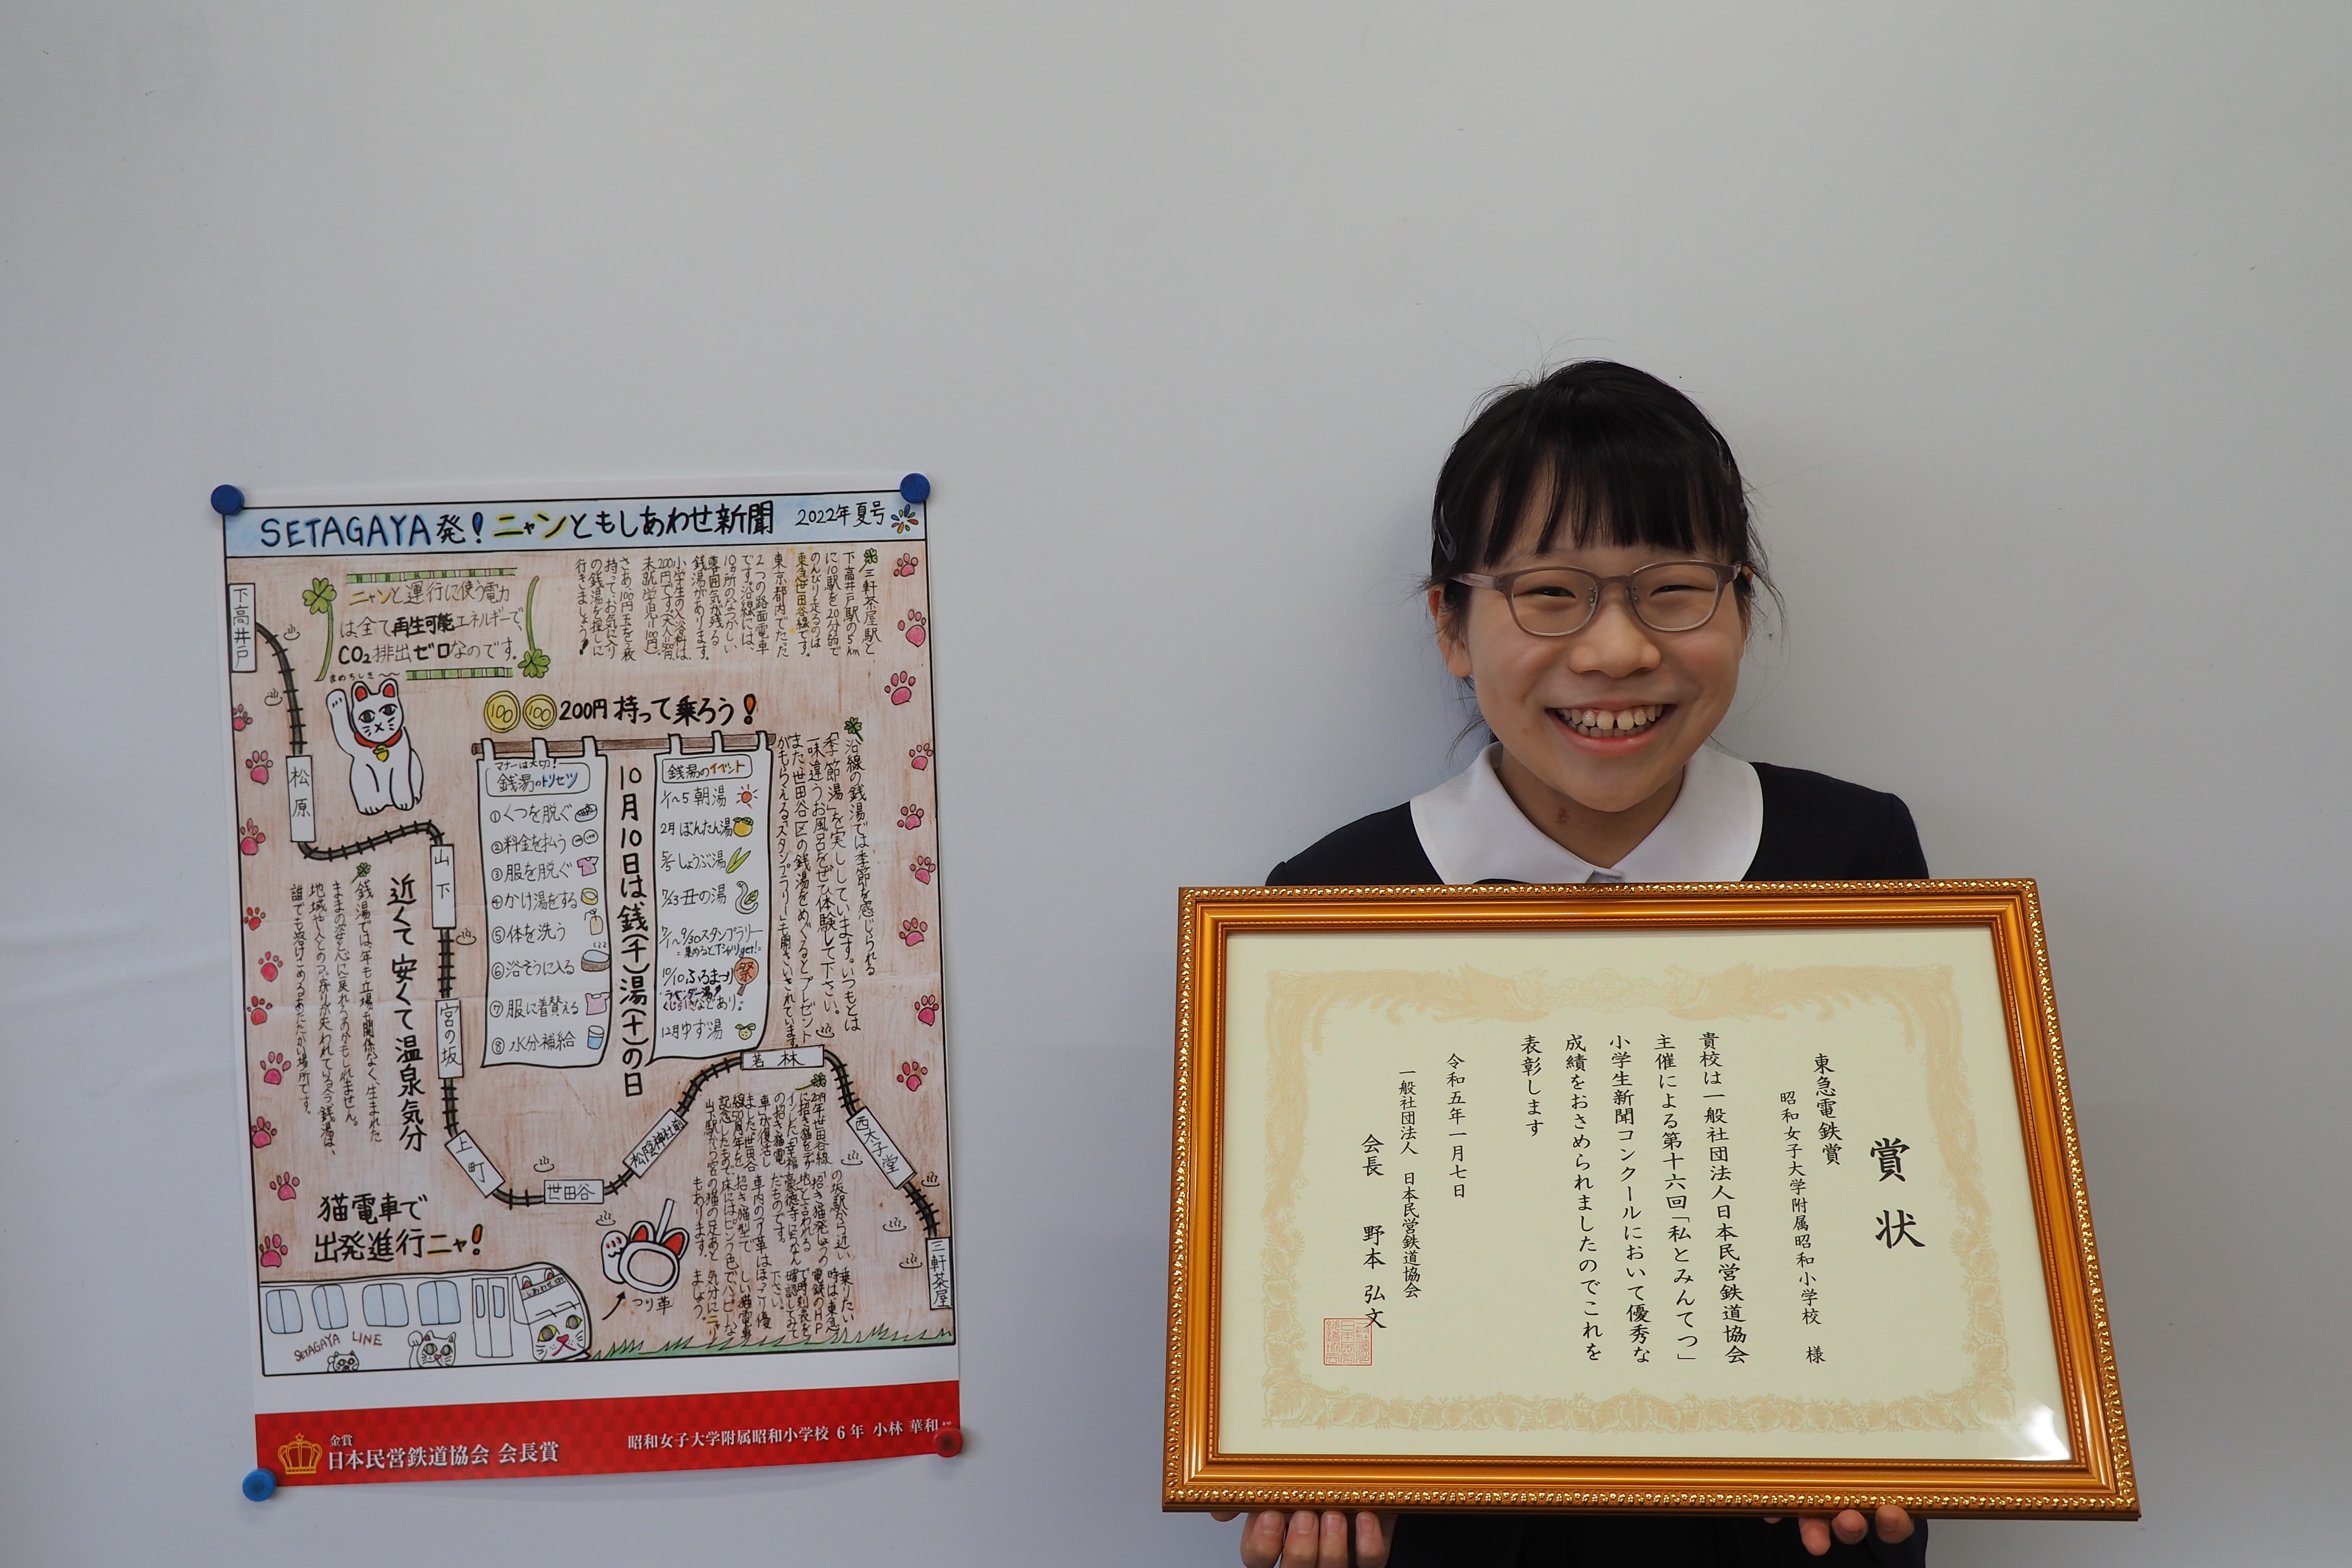 SETAGAYA発!ニャンともしあわせ新聞 2022年夏号
三軒茶屋駅と
下高井戸駅の5km
に10駅を20分弱で
のんびり走るのは
東急世田谷線です。
東京都内でたった
2つの路面電車
です。沿線には、
10ヵ所のなつかしい
雰囲気が残る
銭湯があります。
小学生の入浴料は
200円です
さあ、100円玉を2枚
持って、お気に入り
の銭湯を探しに
行きましょう!
ニャンと運行に使う電力
は全て再生可能エネルギーで、
CO2排出ゼロなのです。
まめちしき
下高井戸
松原
山下
宮の坂
上町
世田谷
松陰神社前
若林
西太子堂
三軒茶屋
100 100 200円持って乗ろう!
沿線の銭湯では季節を感じられる
「季節湯」を実しています。いつもとは
一味違うお風呂をぜひ体験して下さい。
また、世田谷区の銭湯をめぐるとプレゼント
がもらえる「スタンプラリー」も開さいされています。
銭湯のイベント
1/1〜5 朝湯
2月 ぼんたん湯
5/5 しょうぶ湯
7/23 丑の湯
7/1〜9/30スタンプラリー
10/10ふろまつり
祭
ラベンダー湯
12月ゆず湯
10月10日は銭(千)湯(十)の日
マナーは大切!
銭湯のトリセツ
①くつを脱ぐ
②料金を払う
③服を脱ぐ
④かけ湯をする
⑤体を洗う
⑥浴そうに入る
⑦服に着替える
⑧水分補給
近くて安くて温泉気分
銭湯では年も立場も関係なく、生まれた
ままの姿と心に戻れるのかもしれません。
地域や人とのつながりが失われている今、銭湯は、
誰でも溶けこめるあたたかい場所です。
猫電車で
出発進行ニャ!
つり革
SETAGAYA LINE
金賞
日本民営鉄道協会 会長賞
昭和女子大学附属昭和小学校 6年 小林 華和
賞状
東急電鉄賞
昭和女子大学附属昭和小学校 様
貴校は一般社団法人日本民営鉄道協会
主催による第十六回「私とみんてつ」
小学生新聞コンクールにおいて優秀な
成績をおさめられましたのでこれを
表彰します
令和五年一月七日
一般社団法人 日本民営鉄道協会
会長 野本 弘文